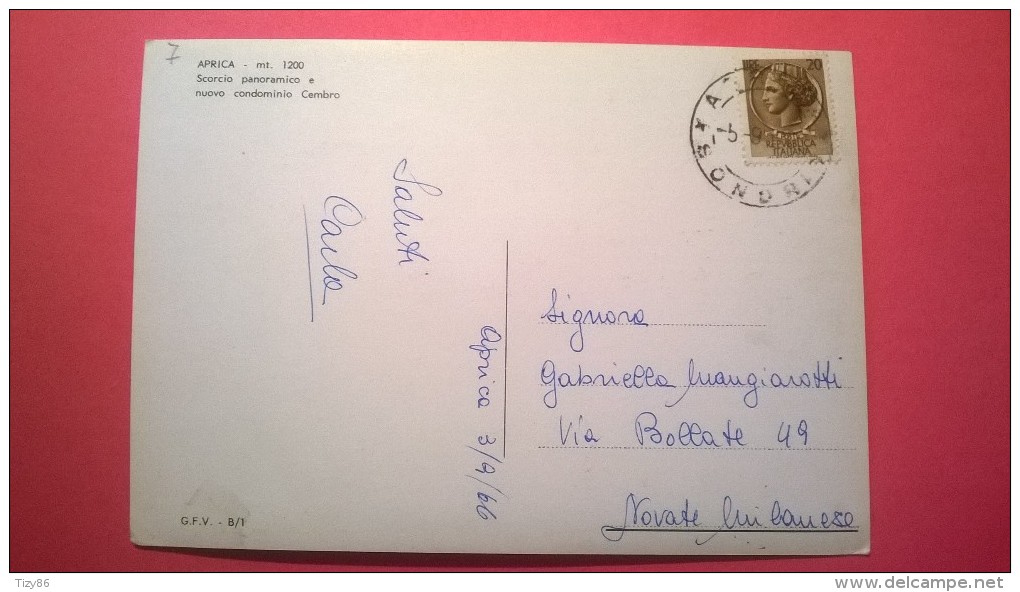 7
APRICA - mt. 1200
Scorcio panoramico e
nuovo condominio Cembro
LIRE 20
REPVBBLICA
ITALIANA
-5-9
ONDRI
Saluti
Carlo
Aprica 3/9/66
Signora
Gabriella Mangiarotti
Via Bollate 49
Novate Milanese
G.F.V. - B/1
Tizy86
delcampe.net